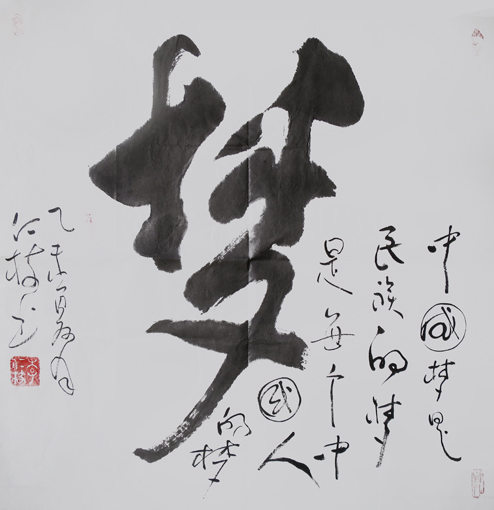 梦
中国梦是
民族的梦
也是每个中
国人
的梦
乙未夏月
仁枝书